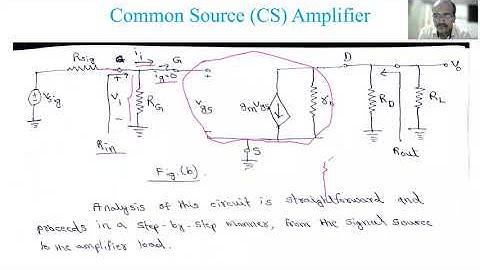 Common Source (CS) Amplifier
Rsig G ii G D Vo
ig=0
Vsig Vi RG Vgs gmVgs ro RD RL
+ − + −
Rin S Rout
Fig.(b).
Analysis of this circuit is straightforward and
proceeds in a step-by-step manner, from the signal source
to the amplifier load.